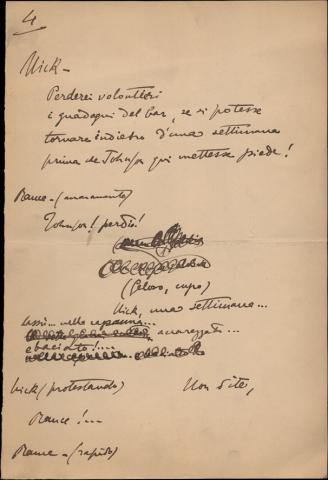 4
Nick –
Perderei volontieri
i guadagni del bar, se si potesse
tornare indietro d'una settimana
prima che Johnson qui mettesse piede!
Rance – (amaramente)
Johnson! perdio!
(Geloso, cupo)
Nick, una settimana...
lassù... nella capanna...
accarezzati...
e baciato!....
Nick (protestando) Non dite,
Rance!...
Rance – (rapido)